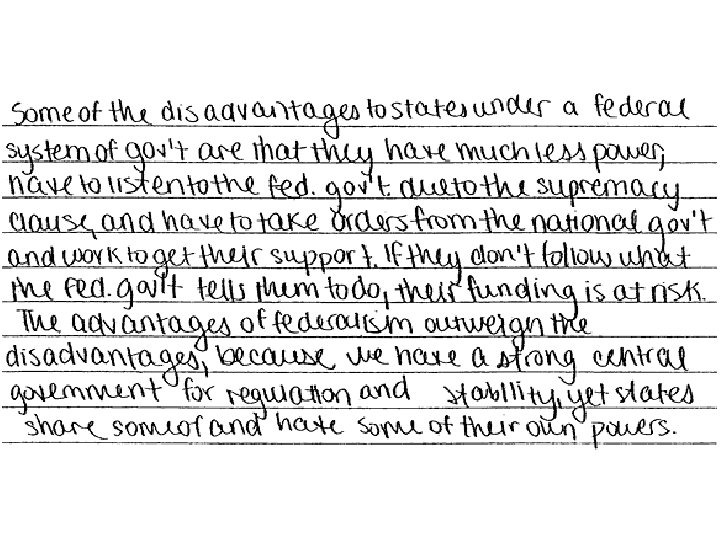 Some of the disadvantages to states under a federal
system of gov't are that they have much less power,
have to listen to the fed. gov't due to the supremacy
clause, and have to take orders from the national gov't
and work to get their support. If they don't follow what
the fed. gov't tells them to do, their funding is at risk.
The advantages of federalism outweigh the
disadvantages, because we have a strong central
government for regulation and stability, yet states
share some of and have some of their own powers.